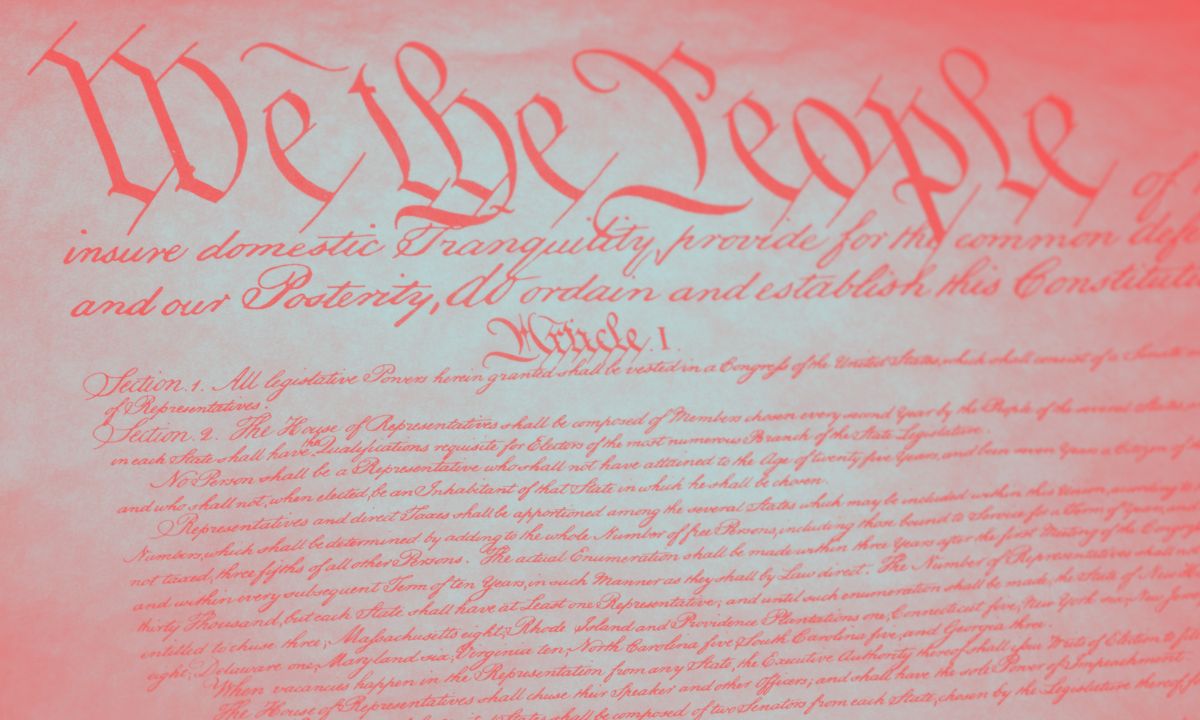 We the People of
insure domestic Tranquility, provide for the common defe
and our Posterity, do ordain and establish this Constituti
Article. I.
Section. 1. All legislative Powers herein granted shall be vested in a Congress of the United States, which shall consist of a Senate
of Representatives.
Section. 2. The House of Representatives shall be composed of Members chosen every second Year by the People of the several States,
in each State shall have the Qualifications requisite for Electors of the most numerous Branch of the State Legislature.
No Person shall be a Representative who shall not have attained to the Age of twenty five Years, and been seven Years a Citizen of
and who shall not, when elected, be an Inhabitant of that State in which he shall be chosen.
Representatives and direct Taxes shall be apportioned among the several States which may be included within this Union, according to
Numbers, which shall be determined by adding to the whole Number of free Persons, including those bound to Service for a Term of Years, and
not taxed, three fifths of all other Persons. The actual Enumeration shall be made within three Years after the first Meeting of the Congress
and within every subsequent Term of ten Years, in such Manner as they shall by Law direct. The Number of Representatives shall not
thirty Thousand, but each State shall have at Least one Representative; and until such enumeration shall be made, the State of New H
entitled to chuse three, Massachusetts eight, Rhode Island and Providence Plantations one, Connecticut five, New York six, New Jersey
eight, Delaware one, Maryland six, Virginia ten, North Carolina five, South Carolina five, and Georgia three.
When vacancies happen in the Representation from any State, the Executive Authority thereof shall issue Writs of Election to fill
The House of Representatives shall chuse their Speaker and other Officers; and shall have the sole Power of Impeachment.
States shall be composed of two Senators from each State, chosen by the Legislature thereof, f